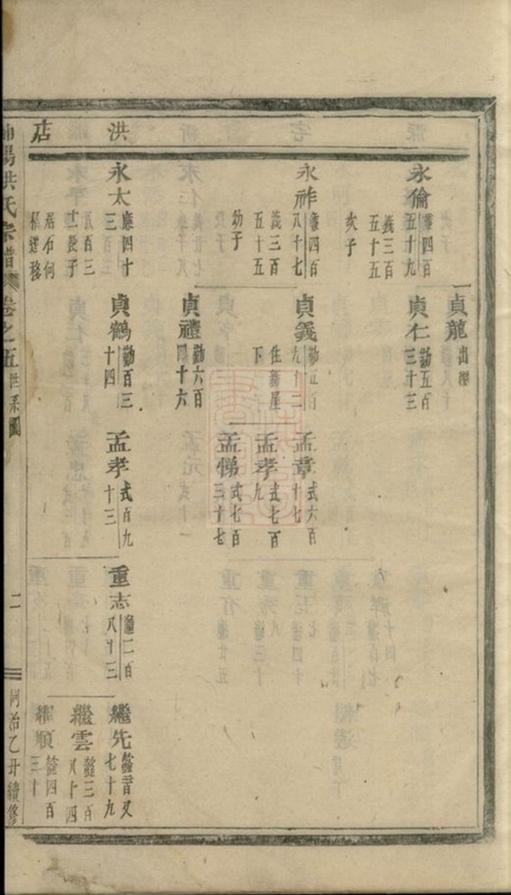 洪店
永倫 五十九
義三百五十五
亥子
貞龍 出繼
貞仁 勤五百三十三
永祚 四百八十七
義三百五十五
幼子
貞義 九十二
住新屋下
孟章 式六百十七
孟孝 式七百九
孟悌 式七百三十七
貞禮 勤六百四十六
永太 四十三
百三十二
長子
居石何
遷移
貞鶴 勤百三十四
孟孝 式百九十三
重志 二百八十三
繼先 七十九
繼雲 三百八十四
繼順 四百三十
洪氏宗譜 卷之五 世系圖
二
同治乙丑續修